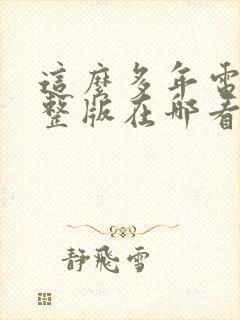 這麼多年電
整版在哪看
静飛雪